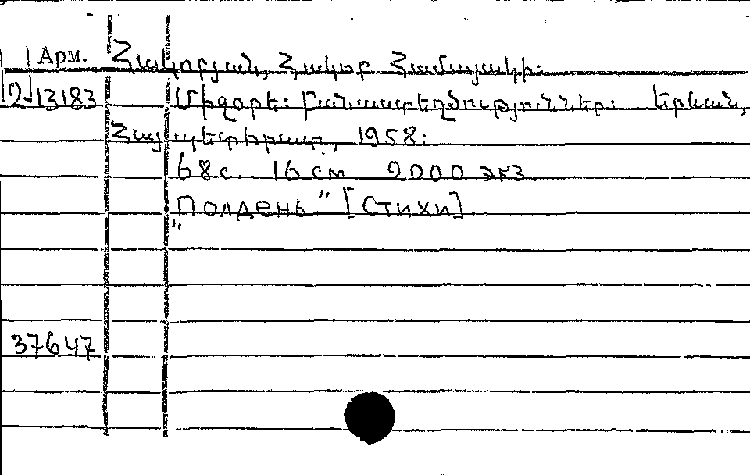 Арм. Հակոբյան, Հակոբ Համայակի։
Միզօրե։ Բանաստեղծություններ։ Երևան,
13183
Հայպետհրատ, 1958։
68 с. 16 см 2000 экз
"Полдень" [Стихи]
37647